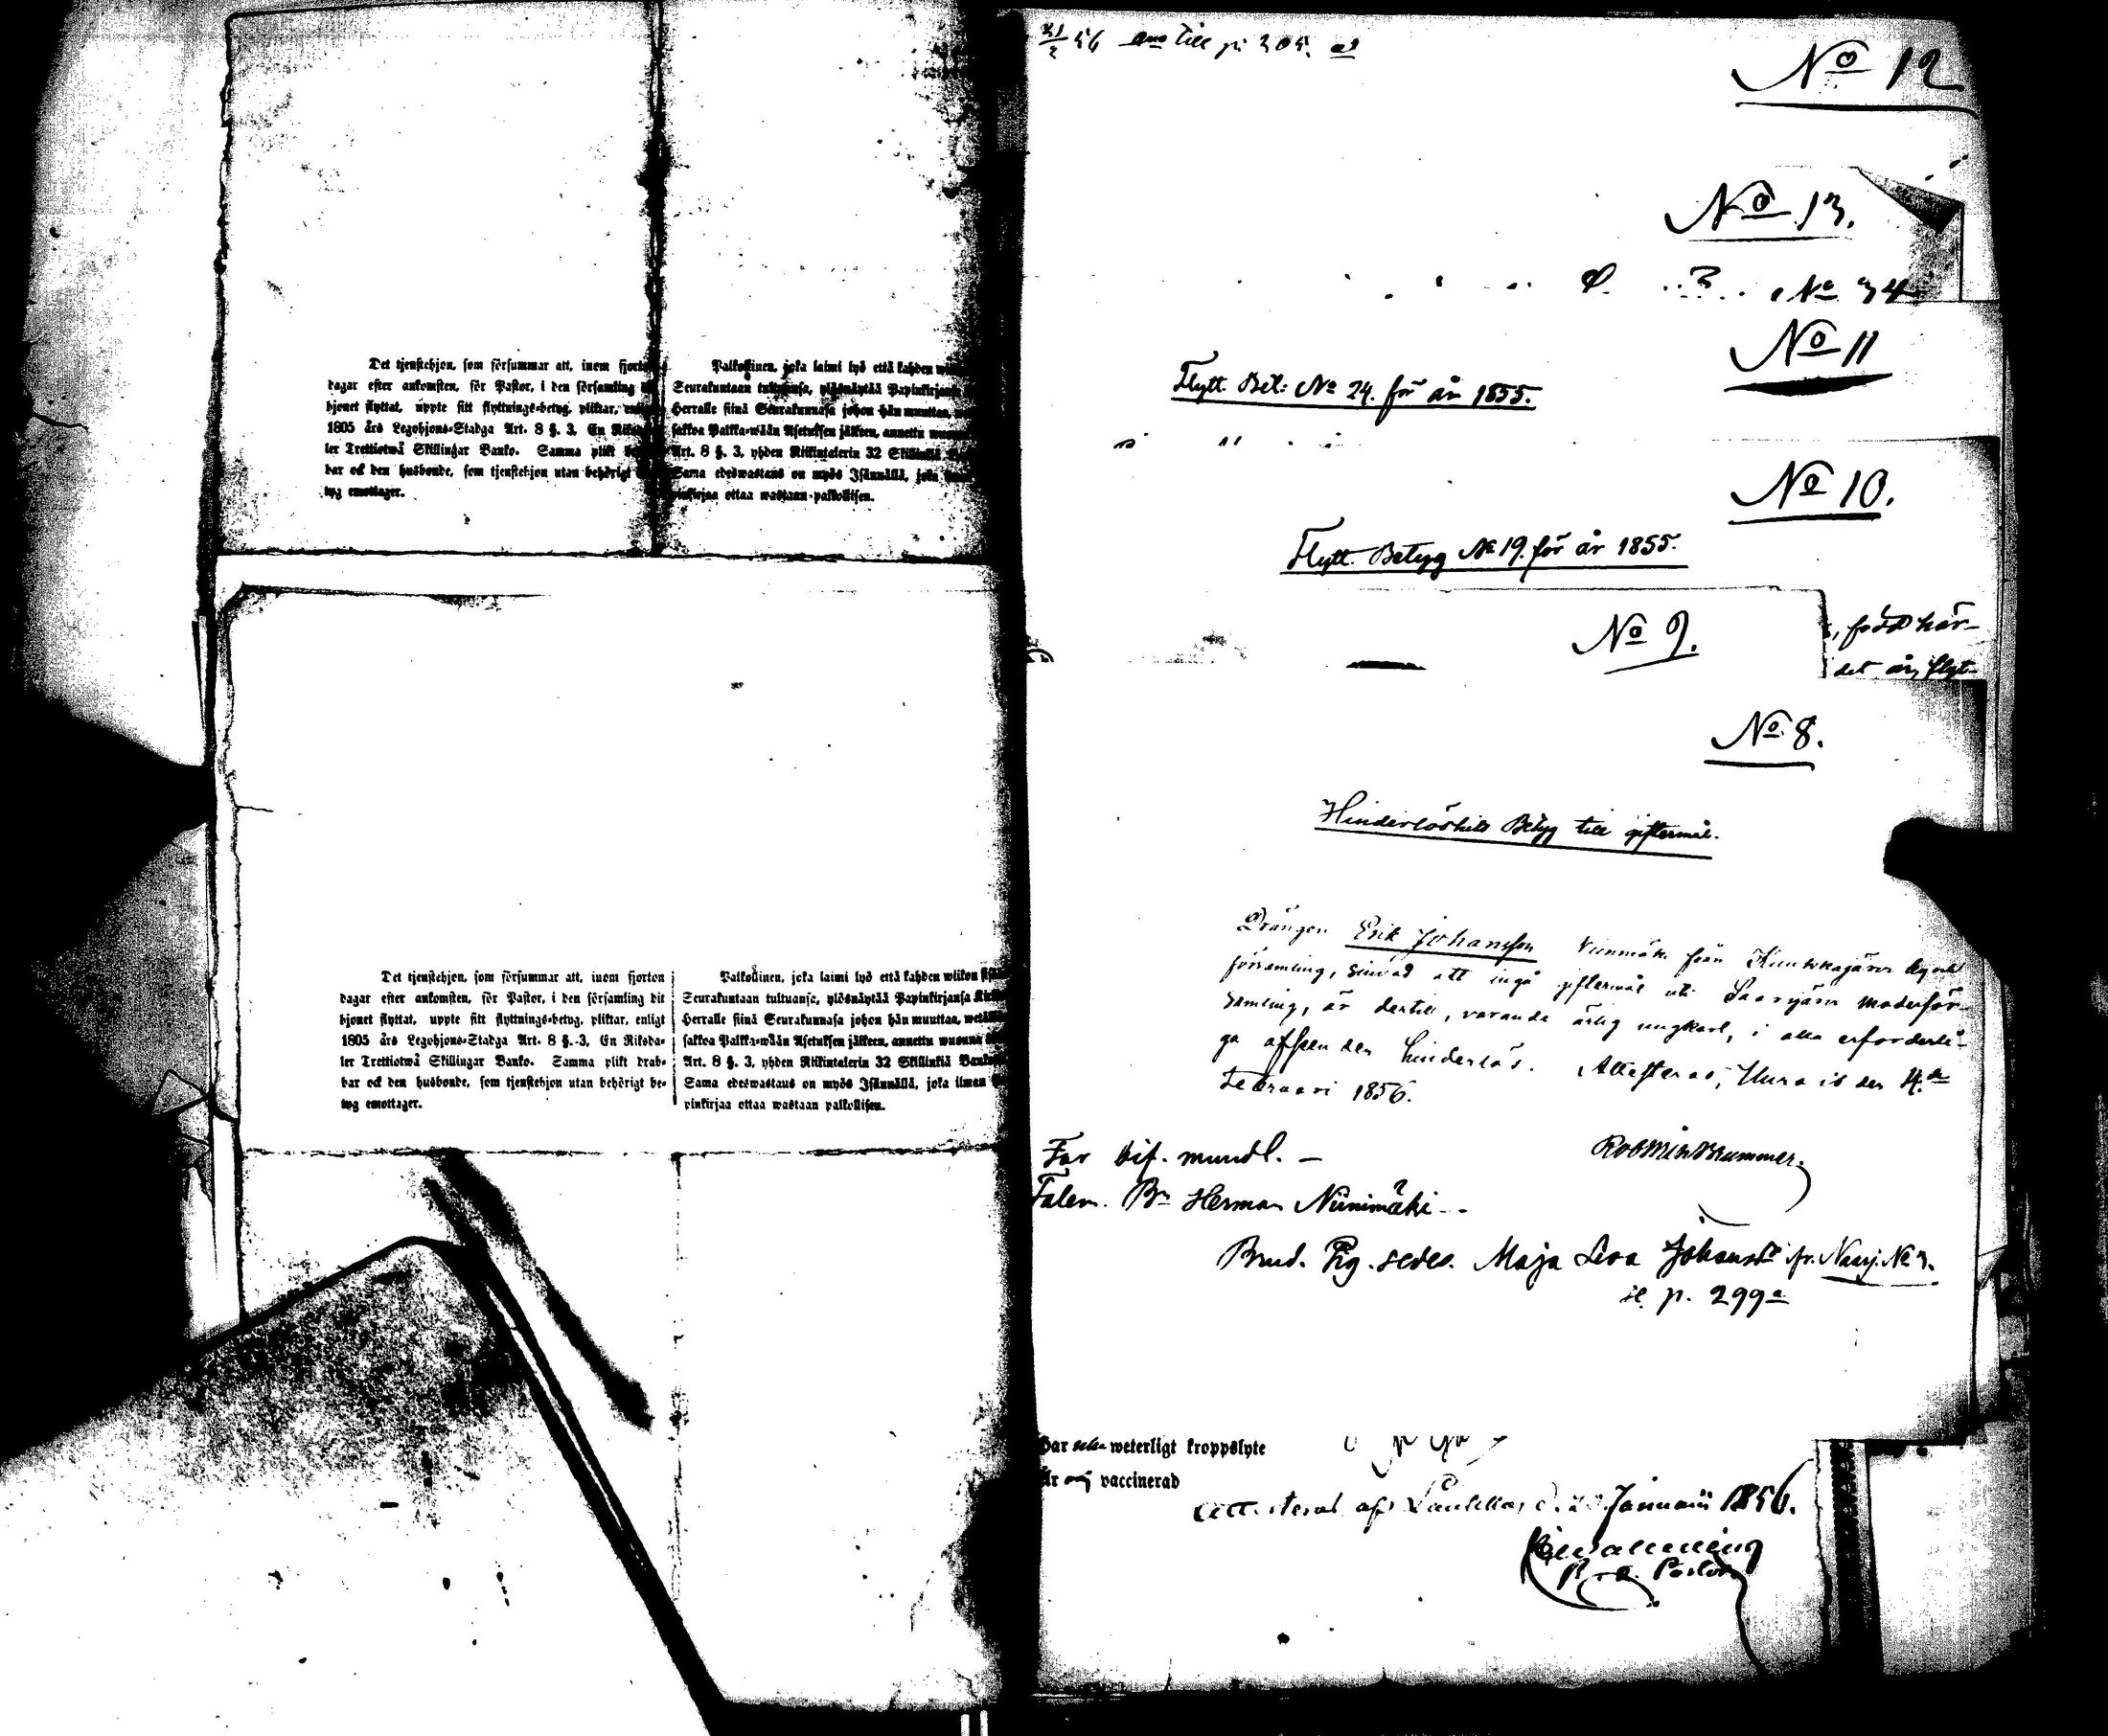 Det tjenstehjon, som försummar att, inom fjorton
dagar efter ankomsten, för Pastor, i den församling
hjonet flyttat, uppte sitt flyttnings-betyg, pliktar,
1805 års Legohjons-Stadga Art. 8 §. 3, En
ler Trettiotwå Skillingar Banko. Samma plikt
bar ock den husbonde, som tjenstehjon utan behörigt
tyg emottager.
Palkollinen, joka laimi lyö että kahden
Seurakuntaan tultuansa, ylösnäytää
Herralle siinä Seurakunnasa johon hän muuttaa,
sakkoa Palkka-wään Asetuksen jälkeen, annettu
Art. 8 §. 3, yhden Riikintalerin 32
Sama edeswastaus on myös Isännällä, joka
pinkirjaa ottaa wastaan palkollisen.
Det tjenstehjon, som försummar att, inom fjorton
dagar efter ankomsten, för Pastor, i den församling dit
hjonet flyttat, uppte sitt flyttnings-betyg, pliktar, enligt
1805 års Legohjons-Stadga Art. 8 §. 3, En Riksda-
ler Trettiotwå Skillingar Banko. Samma plikt drab-
bar ock den husbonde, som tjenstehjon utan behörigt be-
tyg emottager.
Palkollinen, joka laimi lyö että kahden wiikon
Seurakuntaan tultuansa, ylösnäytää Papinkirjansa
Herralle siinä Seurakunnasa johon hän muuttaa,
sakkoa Palkka-wään Asetuksen jälkeen, annettu wuonna
Art. 8 §. 3, yhden Riikintalerin 32 Skillinkiä
Sama edeswastaus on myös Isännällä, joka ilman
pinkirjaa ottaa wastaan palkollisen.
56 till p. 205.
No 12
No 13.
No 34
No 11
Flytt. Bet: No 24. för år 1855.
No 10.
Flytt. Betyg No 19. för år 1855.
No 9.
, född här-
det år, flyt-
No 8.
Hinderlöshets Betyg till giftermål.
Drängen Erik Johansson från
församling, sinnad att ingå giftermål uti Saarijärvi moderför-
samling, är dertill, varande ärlig ungkarl, i alla erforderli-
ga afseenden hinderlös. Attesteras, den 4.de
Februari 1856.
Far bif. mundl. –
Talem. Br Herman Niinimäki –
Brud. Pig. sedes. Maja Lisa Johansdr fr. No 3.
se p. 299
Har weterligt kroppslyte
Är vaccinerad
af Januarii 1856.
Pastor